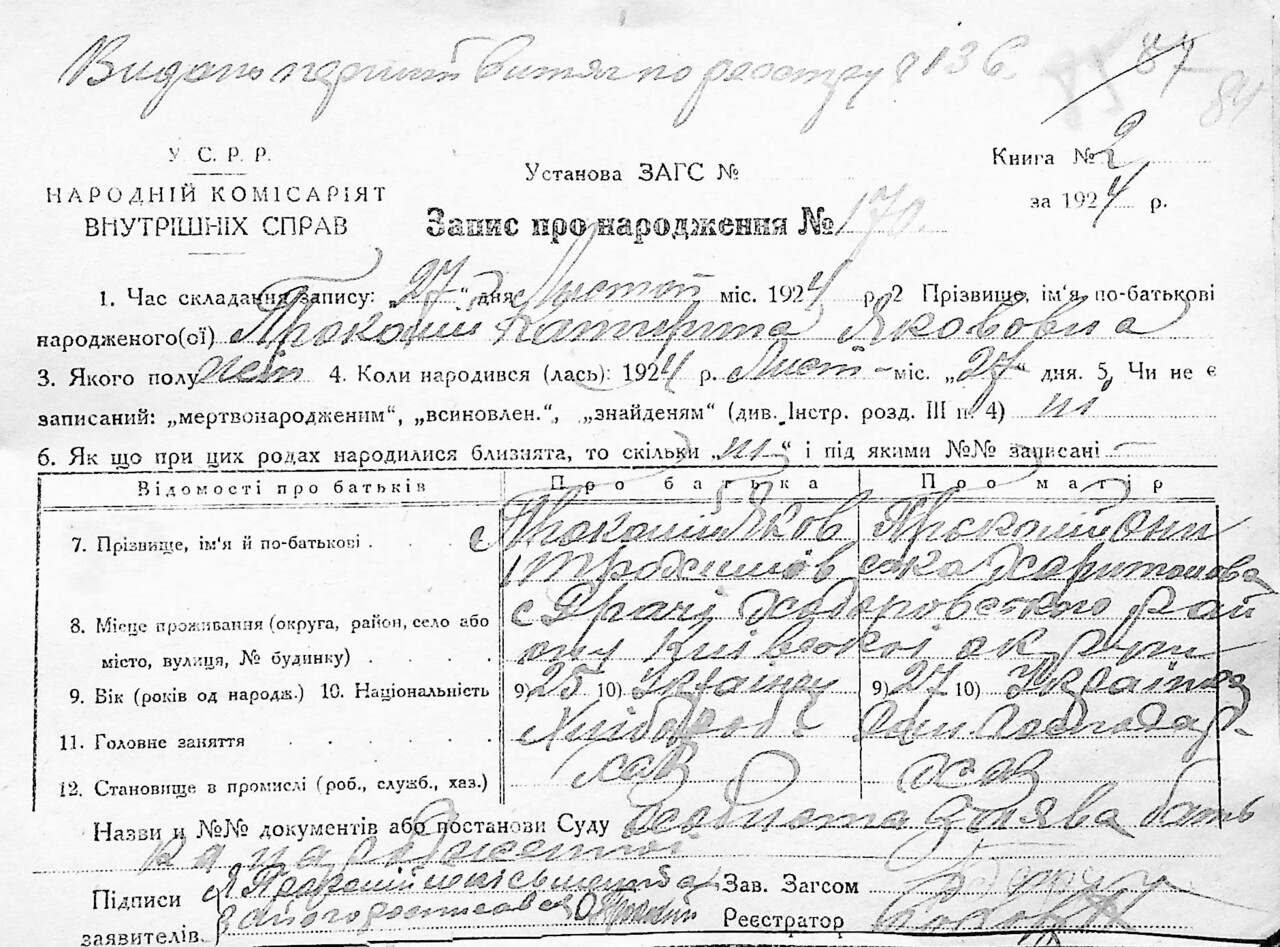 Видано перший витяг по реєстру 136. 87
84
У. С. Р. Р.
НАРОДНІЙ КОМІСАРІЯТ
ВНУТРІШНІХ СПРАВ
Установа ЗАГС №
Запис про народження № 170.
Книга № 2
за 1924 р.
1. Час складання запису: „27“ дня Листоп міс. 1924 р. 2 Прізвище, ім'я по-батькові
народженого(ої) Катерина Якововна
3. Якого полу жін 4. Коли народився (лась): 1924 р. Лист- міс. „27“ дня. 5. Чи не є
записаний: „мертвонародженим“, „всиновлен.“, „знайденям“ (див. Інстр. розд. III п. 4) ні
6. Як що при цих родах народилися близнята, то скільки „ні“ і під якими №№ записані –
Відомості про батьків Про батька Про матір
7. Прізвище, ім'я й по-батькові Яков Они
Трохимов ська Харитонова
8. Місце проживання (округа, район, село або с Ходоровського рай
місто, вулиця, № будинку) ону Київської округи
9. Вік (років од народж.) 10. Національність 9) 25 10) Українец 9) 27 10) Українка
11. Головне заняття Хлібороб Дом Господар.
12. Становище в промислі (роб., служб., хаз.) хаз хаз
Назви и №№ документів або постанови Суду заява бать
ка
Підписи
заявителів
Зав. Загсом
Реєстратор